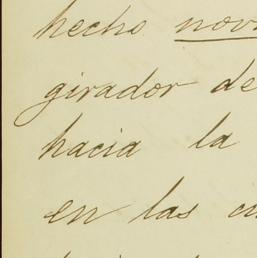 hecho
girador de
hacia la
en las